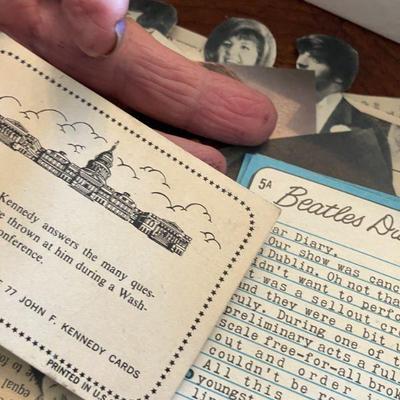 Kennedy answers the many ques-
thrown at him during a Wash-
conference.
77 JOHN F. KENNEDY CARDS
PRINTED IN U.S.
5A
Beatles
Diary.
Our show was canc
Dublin. Oh not tha
didn't want to perfo
was a sellout cr
and they were a bit
truly. During one of t
preliminary acts a full
scale free-for-all brok
out and order
couldn't be
All this
youngst
equal